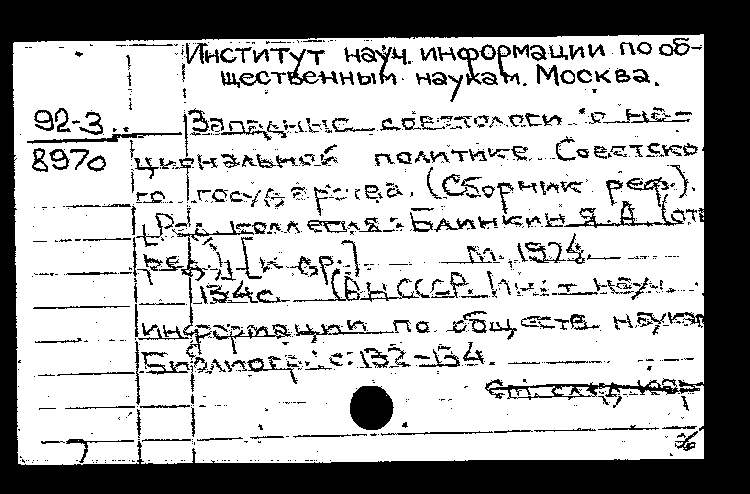 Институт науч. информации по об-
щественным наукам. Москва.
92-3
8970
Западные советологи о на-
циональной политике Советско-
го государства. (Сборник реф.).
[Ред. коллегия: Блинкин Я.А. (отв.
ред.)] [и др.] М., 1974.
134с. (АН СССР. Ин-т науч.
информации по обществ. наукам
Библиогр.: с. 132-134.
См. след. кар